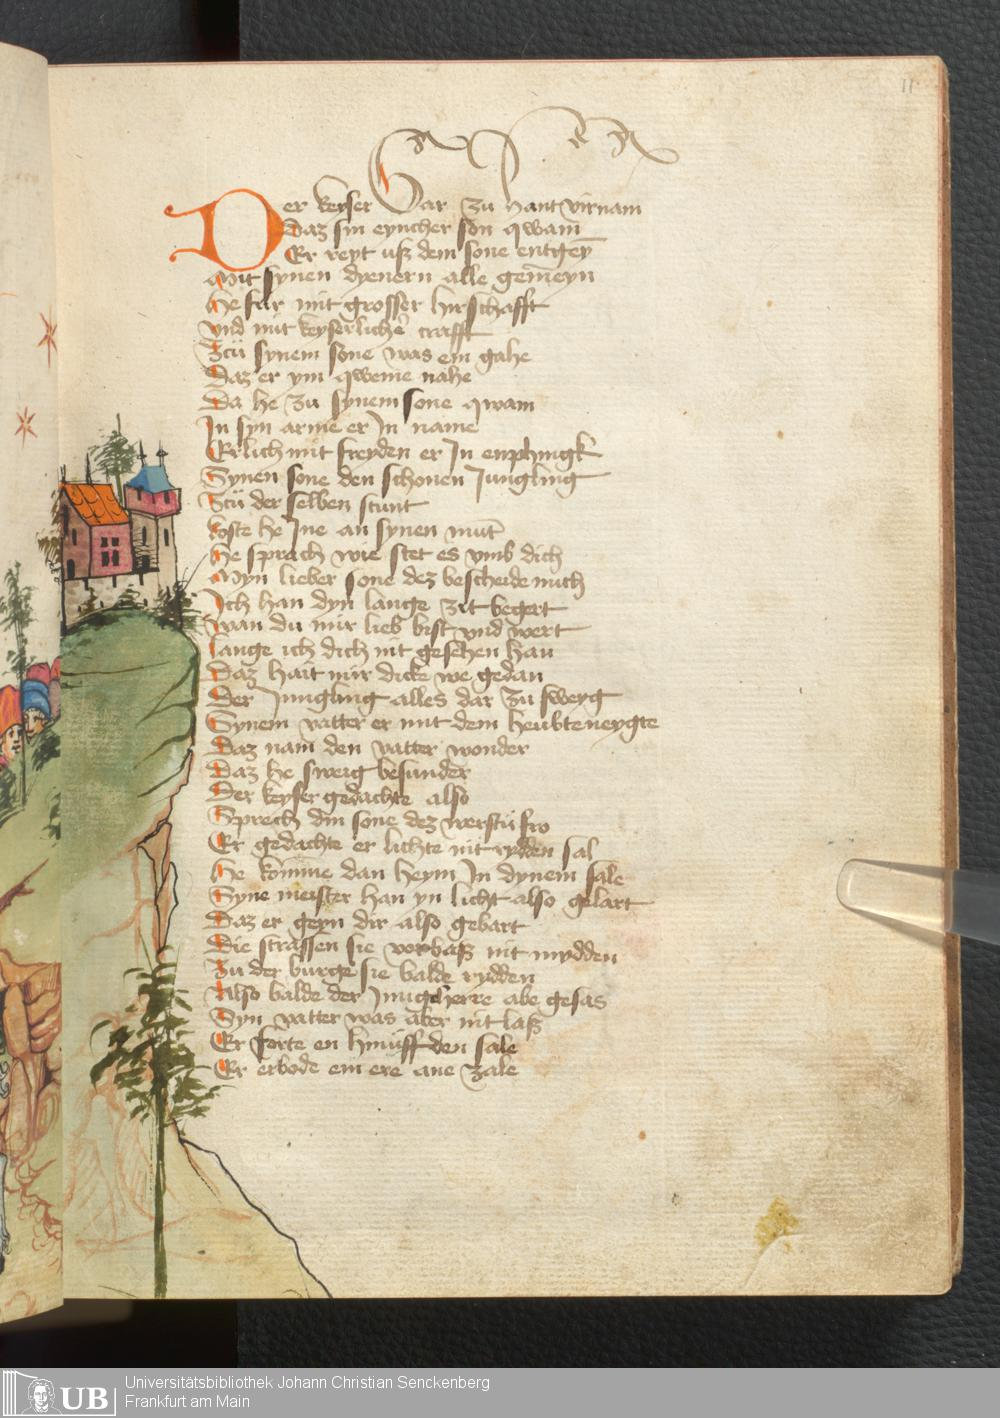 11
Der keyser Gar zu hant virnam
Daz sin eyncher son qwam
Er reyt uß dem sone entgeȳ
Mit synen dyenern alle gemeyn
He far mit grosser hirschafft
Vnd mit keyserlicher crafft
Zcu synem sone was em gahe
Daz er ym qweme nahe
Da he zu synem sone qwam
In syn arme er In name
Erlich mit freyden er In enphingk
Synen sone den schonen Jungling
Zcu der selben stunt
koste he Jne an synen munt
He sprach wie stet es vmb dich
Myn lieber sone dez bescheide mich
Ich han dyn lange zit begert
Wan du mir lieb bist vnd wert
Lange ich dich nit gesehen han
Daz hait mir dicke we gedan
Der Jungling alles dar zu sweyg
Synem vatter er mit dem heubte neygte
Daz nam den vatter wonder
Daz he sweig besunder
Der keyser gedachte also
Sprech din sone dez werstu fro
Er gedachte er lichte nit rydden sal
He komme dan heym In dynem sale
Syne meister han yn licht also gelart
Daz er geyn dir also gebart
Die strassen sie vorbaß nit mydden
Zu der burge sie balde rydden
Also balde der Jungcherre abe gesas
Syn vatter was aber nit laß
Er forte en hinuff den sale
Er erbode em ere ane zale
UB
Universitätsbibliothek Johann Christian Senckenberg
Frankfurt am Main